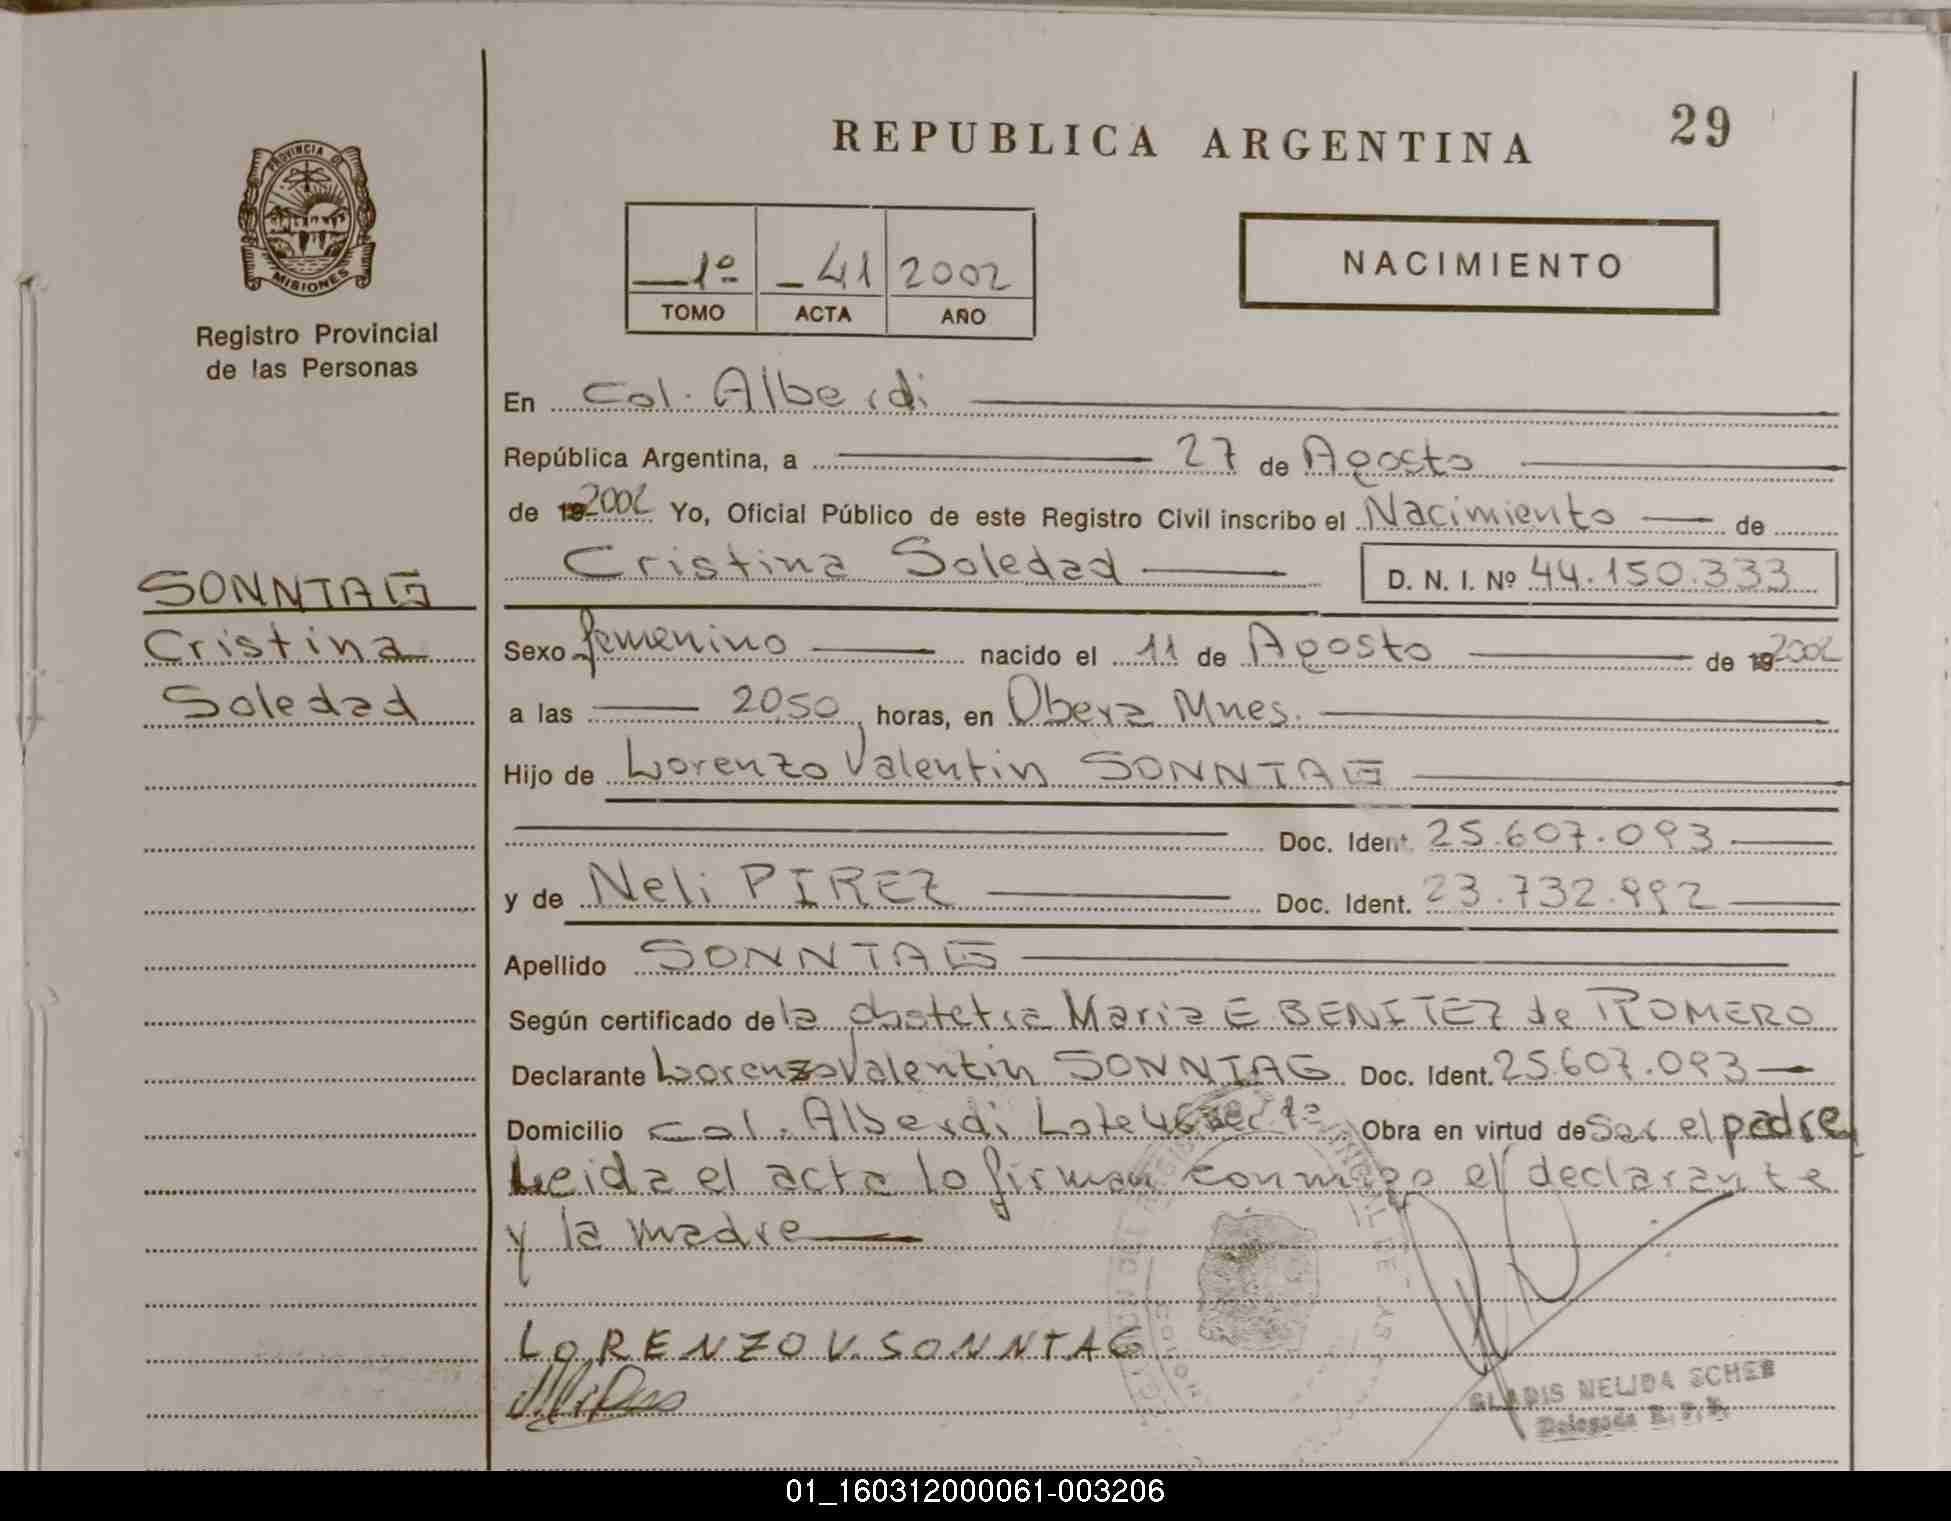 REPUBLICA ARGENTINA
29
PROVINCIA DE
MISIONES
Registro Provincial
de las Personas
1º 41 2002
TOMO ACTA AÑO
NACIMIENTO
En Col. Alberdi
República Argentina, a 27 de Agosto
de 192002 Yo, Oficial Público de este Registro Civil inscribo el Nacimiento de
Cristina Soledad D. N. I. Nº 44.150.333
SONNTAG
Cristina
Soledad
Sexo femenino nacido el 11 de Agosto de 192002
a las 20,50 horas, en Obera Mnes.
Hijo de Lorenzo Valentin SONNTAG
Doc. Ident. 25.607.093
y de Neli PIREZ Doc. Ident. 23.732.992
Apellido SONNTAG
Según certificado de la obstetra Maria E BENITEZ de ROMERO
Declarante Lorenzo Valentin SONNTAG Doc. Ident. 25.607.093
Domicilio Col. Alberdi Lote 46 Obra en virtud de Ser el padre
Leida el acta lo firman conmigo el declarante
y la madre
LORENZO V. SONNTAG
GLADIS NELIDA SCHER
Delegada R. P. P.
01_160312000061-003206